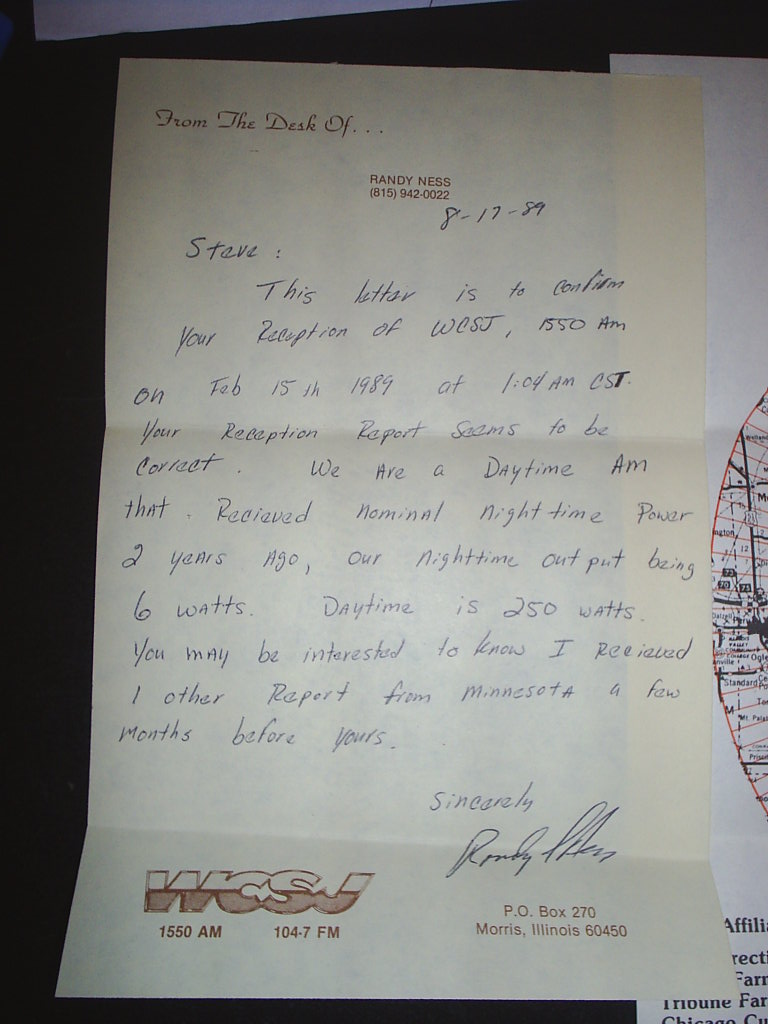 From The Desk Of...
RANDY NESS
(815) 942-0022
8-17-89
Steve:
This letter is to confirm
your Reception of WCSJ, 1550 Am
on Feb 15th 1989 at 1:04 AM CST.
Your Reception Report seems to be
correct. We Are a Daytime Am
that Recieved nominal nighttime Power
2 years Ago, our nighttime output being
6 watts. Daytime is 250 watts.
You may be interested to know I Recieved
1 other Report from Minnesota a few
months before yours.
Sincerely
Randy Ness
WCSJ
1550 AM 104·7 FM
P.O. Box 270
Morris, Illinois 60450
Affilia
recti
Farm
Tribune Far
Chicago Cu